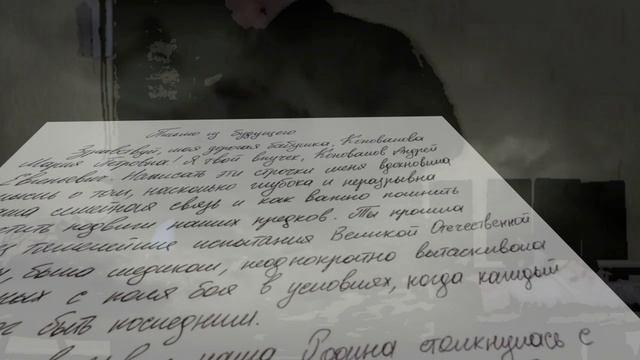 Письмо из будущего
Здравствуй, моя дорогая бабушка, Коновалова
Мария Петровна! Я твой внучек, Коновалов Андрей
Евгеньевич. Написать эти строчки меня вдохновила
мысль о том, насколько глубока и неразрывна
наша семейная связь и как важно помнить
подвиги наших предков. Ты прошла
тяжелейшие испытания Великой Отечественной
была медиком, неоднократно вытаскивала
с поля боя в условиях, когда каждый
быть последним.
наша Родина столкнулась с